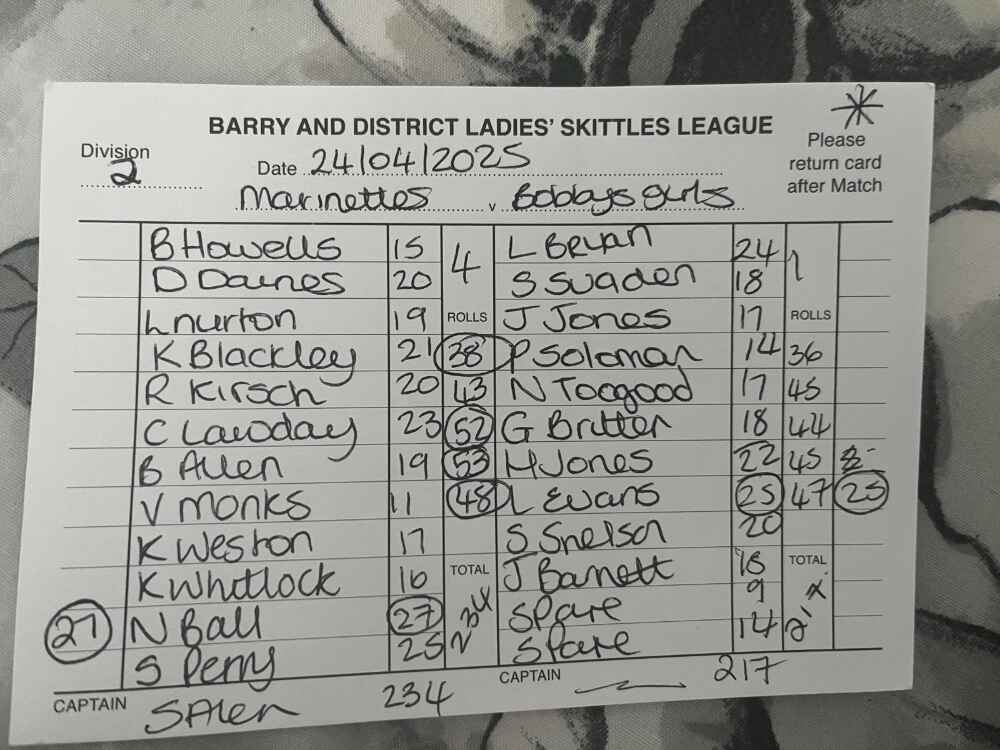 BARRY AND DISTRICT LADIES' SKITTLES LEAGUE
Please return card after Match
Division 2
Date 24/04/2025
Marinettes v Bobbys Gurls
B Howells 15 4 L Bryan 24 1
D Daines 20 S Swaden 18
L nurton 19 ROLLS J Jones 17 ROLLS
K Blackley 21 38 P Soloman 14 36
R Kirsch 20 43 N Toogood 17 45
C Lawday 23 52 G Britten 18 44
B Allen 19 53 H Jones 22 45
V Monks 11 48 L Evans 25 47 25
K Weston 17 S Snelson 20
K Whitlock 16 TOTAL J Barnett 18 TOTAL
27 N Ball 27 234 Spare 9
S Perry 25 Spare 14
CAPTAIN S Allen 234 CAPTAIN 217